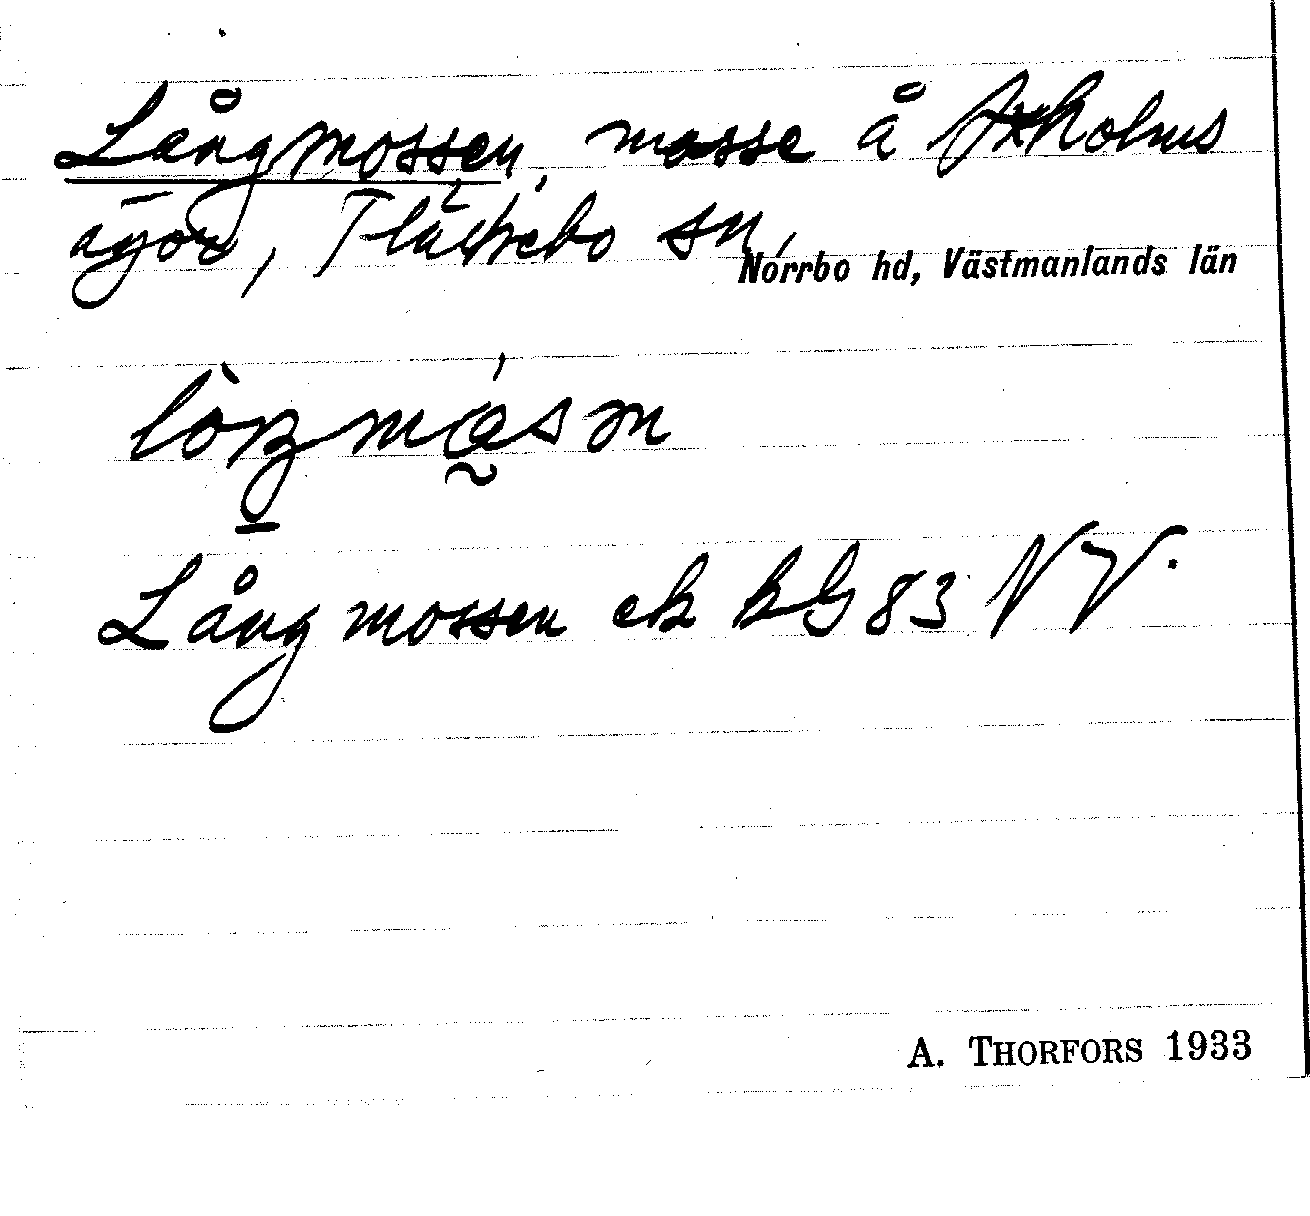 Långmossen, mosse å Axholms
ägor, Fläckebo sn,
Norrbo hd, Västmanlands län
Långmossen ek bG 83 NV.
A. THORFORS 1933